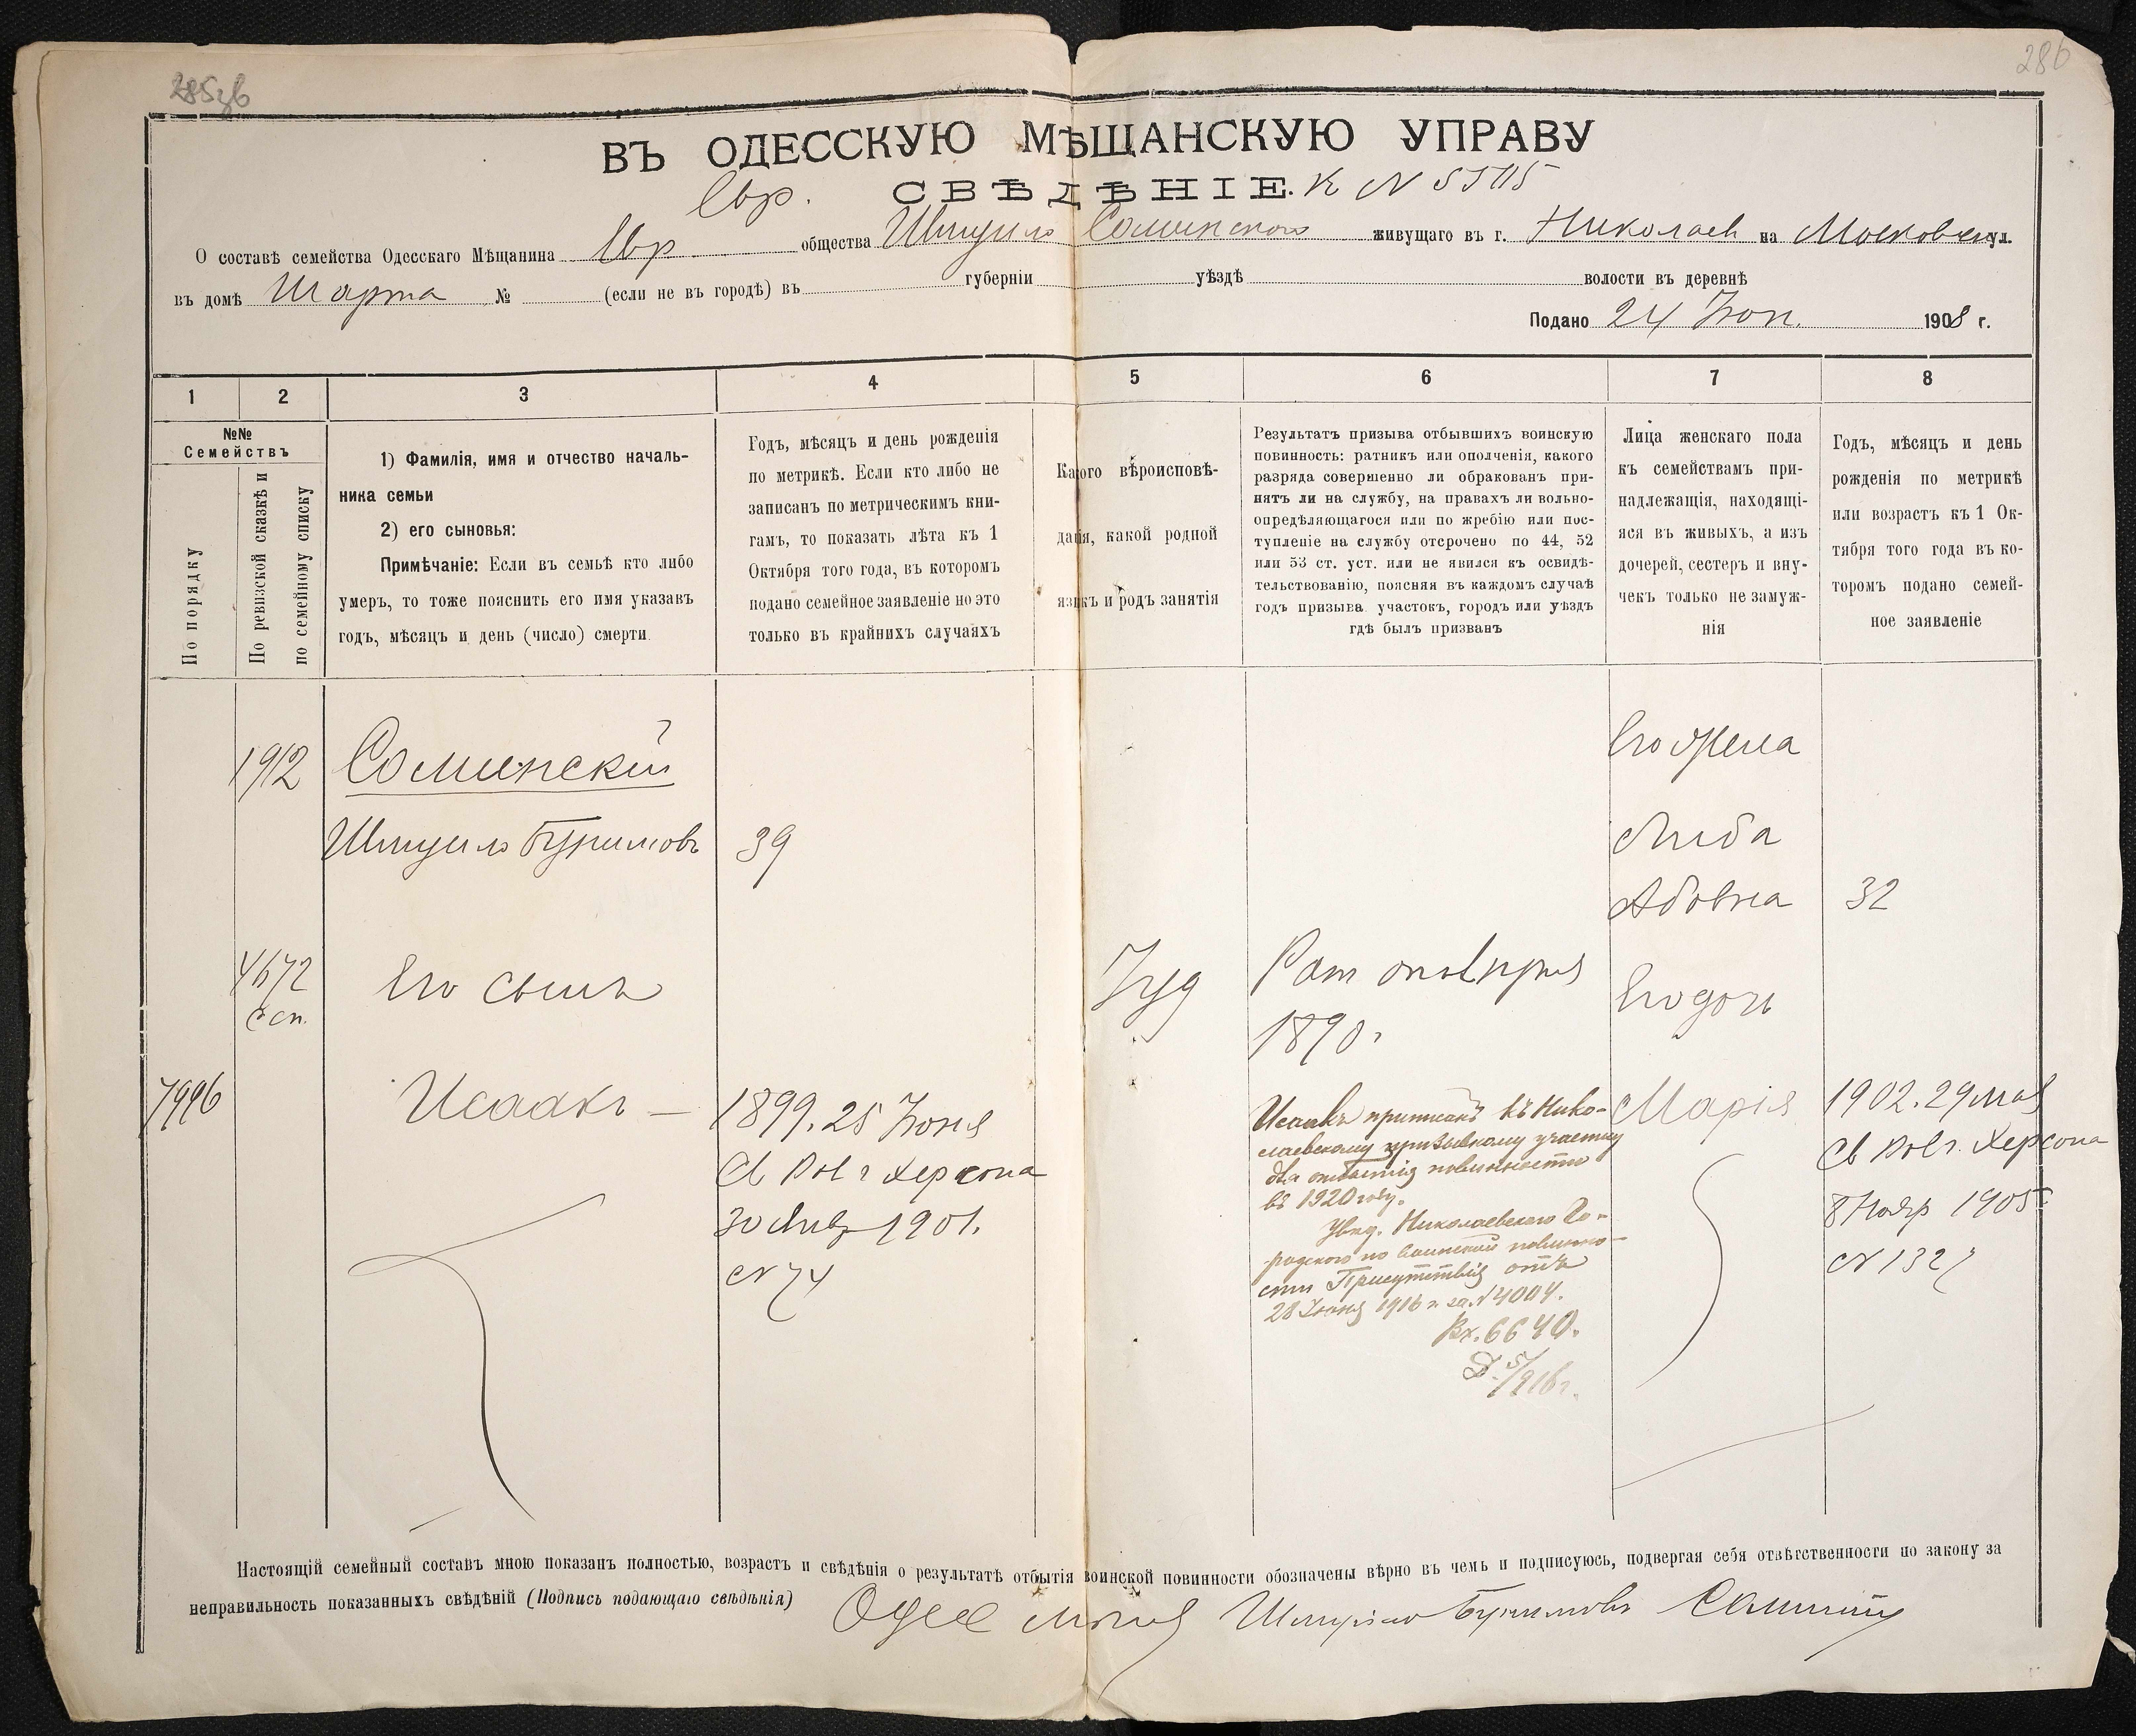 286
ВЪ ОДЕССКУЮ МѢЩАНСКУЮ УПРАВУ
Евр. СВѢДѢНІЕ. К N
О составѣ семейства Одесскаго Мѣщанина Евр общества Шмуило Соминского живущаго въ г. Николаев на Московской ул.
въ домѣ Шарта № (если не въ городѣ) въ губерніи уѣздѣ волости въ деревнѣ
Подано 24 Іюн. 1908 г.
1 2 3 4 5 6 7 8
№№
Семействъ
По порядку
По ревизской сказкѣ и
по семейному списку
1) Фамилія, имя и отчество началь-
ника семьи
2) его сыновья:
Примѣчаніе: Если въ семьѣ кто либо
умеръ, то тоже пояснить его имя указавъ
годъ, мѣсяцъ и день (число) смерти.
Годъ, мѣсяцъ и день рожденія
по метрикѣ. Если кто либо не
записанъ по метрическимъ кни-
гамъ, то показать лѣта къ 1
Октября того года, въ которомъ
подано семейное заявленіе но это
только въ крайнихъ случаяхъ
Какого вѣроисповѣ-
данія, какой родной
языкъ и родъ занятія
Результатъ призыва отбывшихъ воинскую
повинность: ратникъ или ополченія, какого
разряда совершенно ли обракованъ при-
нятъ ли на службу, на правахъ ли вольно-
опредѣляющагося или по жребію или пос-
тупленіе на службу отсрочено по 44, 52
или 53 ст. уст. или не явился къ освидѣ-
тельствованію, поясняя въ каждомъ случаѣ
годъ призыва участокъ, городъ или уѣздъ
гдѣ былъ призванъ
Лица женскаго пола
къ семействамъ при-
надлежащія, находящі-
яся въ живыхъ, а изъ
дочерей, сестеръ и вну-
чекъ только не замуж-
нія
Годъ, мѣсяцъ и день
рожденія по метрикѣ
или возрастъ къ 1 Ок-
тября того года въ ко-
торомъ подано семей-
ное заявленіе
1912 Соминскій Его жена
Шмуило Буримовъ 39 Либа
Абовна 32
4672 Его сынъ Іуд Рат
с сп. 1890 г Его дочь
7996 Исаакъ — 1899. 25 Іюня
Св Рав г Херсона
30 Янв 1901.
N 74
Исаакъ приписанъ къ Нико-
лаевскому призывному участку
для отбытія повинности
въ 1920 году.
Увѣд. Николаевского Го-
родского по воинской повинно-
сти Присутствія отъ
28 Іюня 1916 г. за N 4004.
Вх. 6640.
Марія 1902. 29 мая
Св Рав г. Херсона
8 Нояр 1905 г.
N 132
Настоящій семейный составъ мною показанъ полностью, возрастъ и свѣдѣнія о результатѣ отбытія воинской повинности обозначены вѣрно въ чемъ и подписуюсь, подвергая себя отвѣтственности по закону за
неправильность показанныхъ свѣдѣній (Подпись подающаго свѣдѣнія) Одес Шмуило Буримовъ